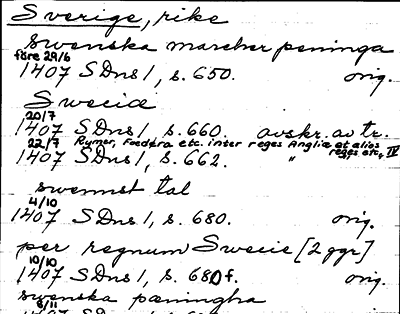 Sverige, rike
swenska marcher peninga
före 29/6
1407 SDns 1, s. 650. orig.
Swecia
20/7
1407 SDns 1, s. 660. avskr. av tr.
22/7 Rymer, Foedera etc. inter reges Angliæ et alios
1407 SDns 1, s. 662. " reges etc, IV
swennst tal
4/10
1407 SDns 1, s. 680. orig.
per regnum Swecie [2 ggr]
10/10
1407 SDns 1, s. 680 f. orig.
swenska pæningha
8/11
1407 SDns 1, s.